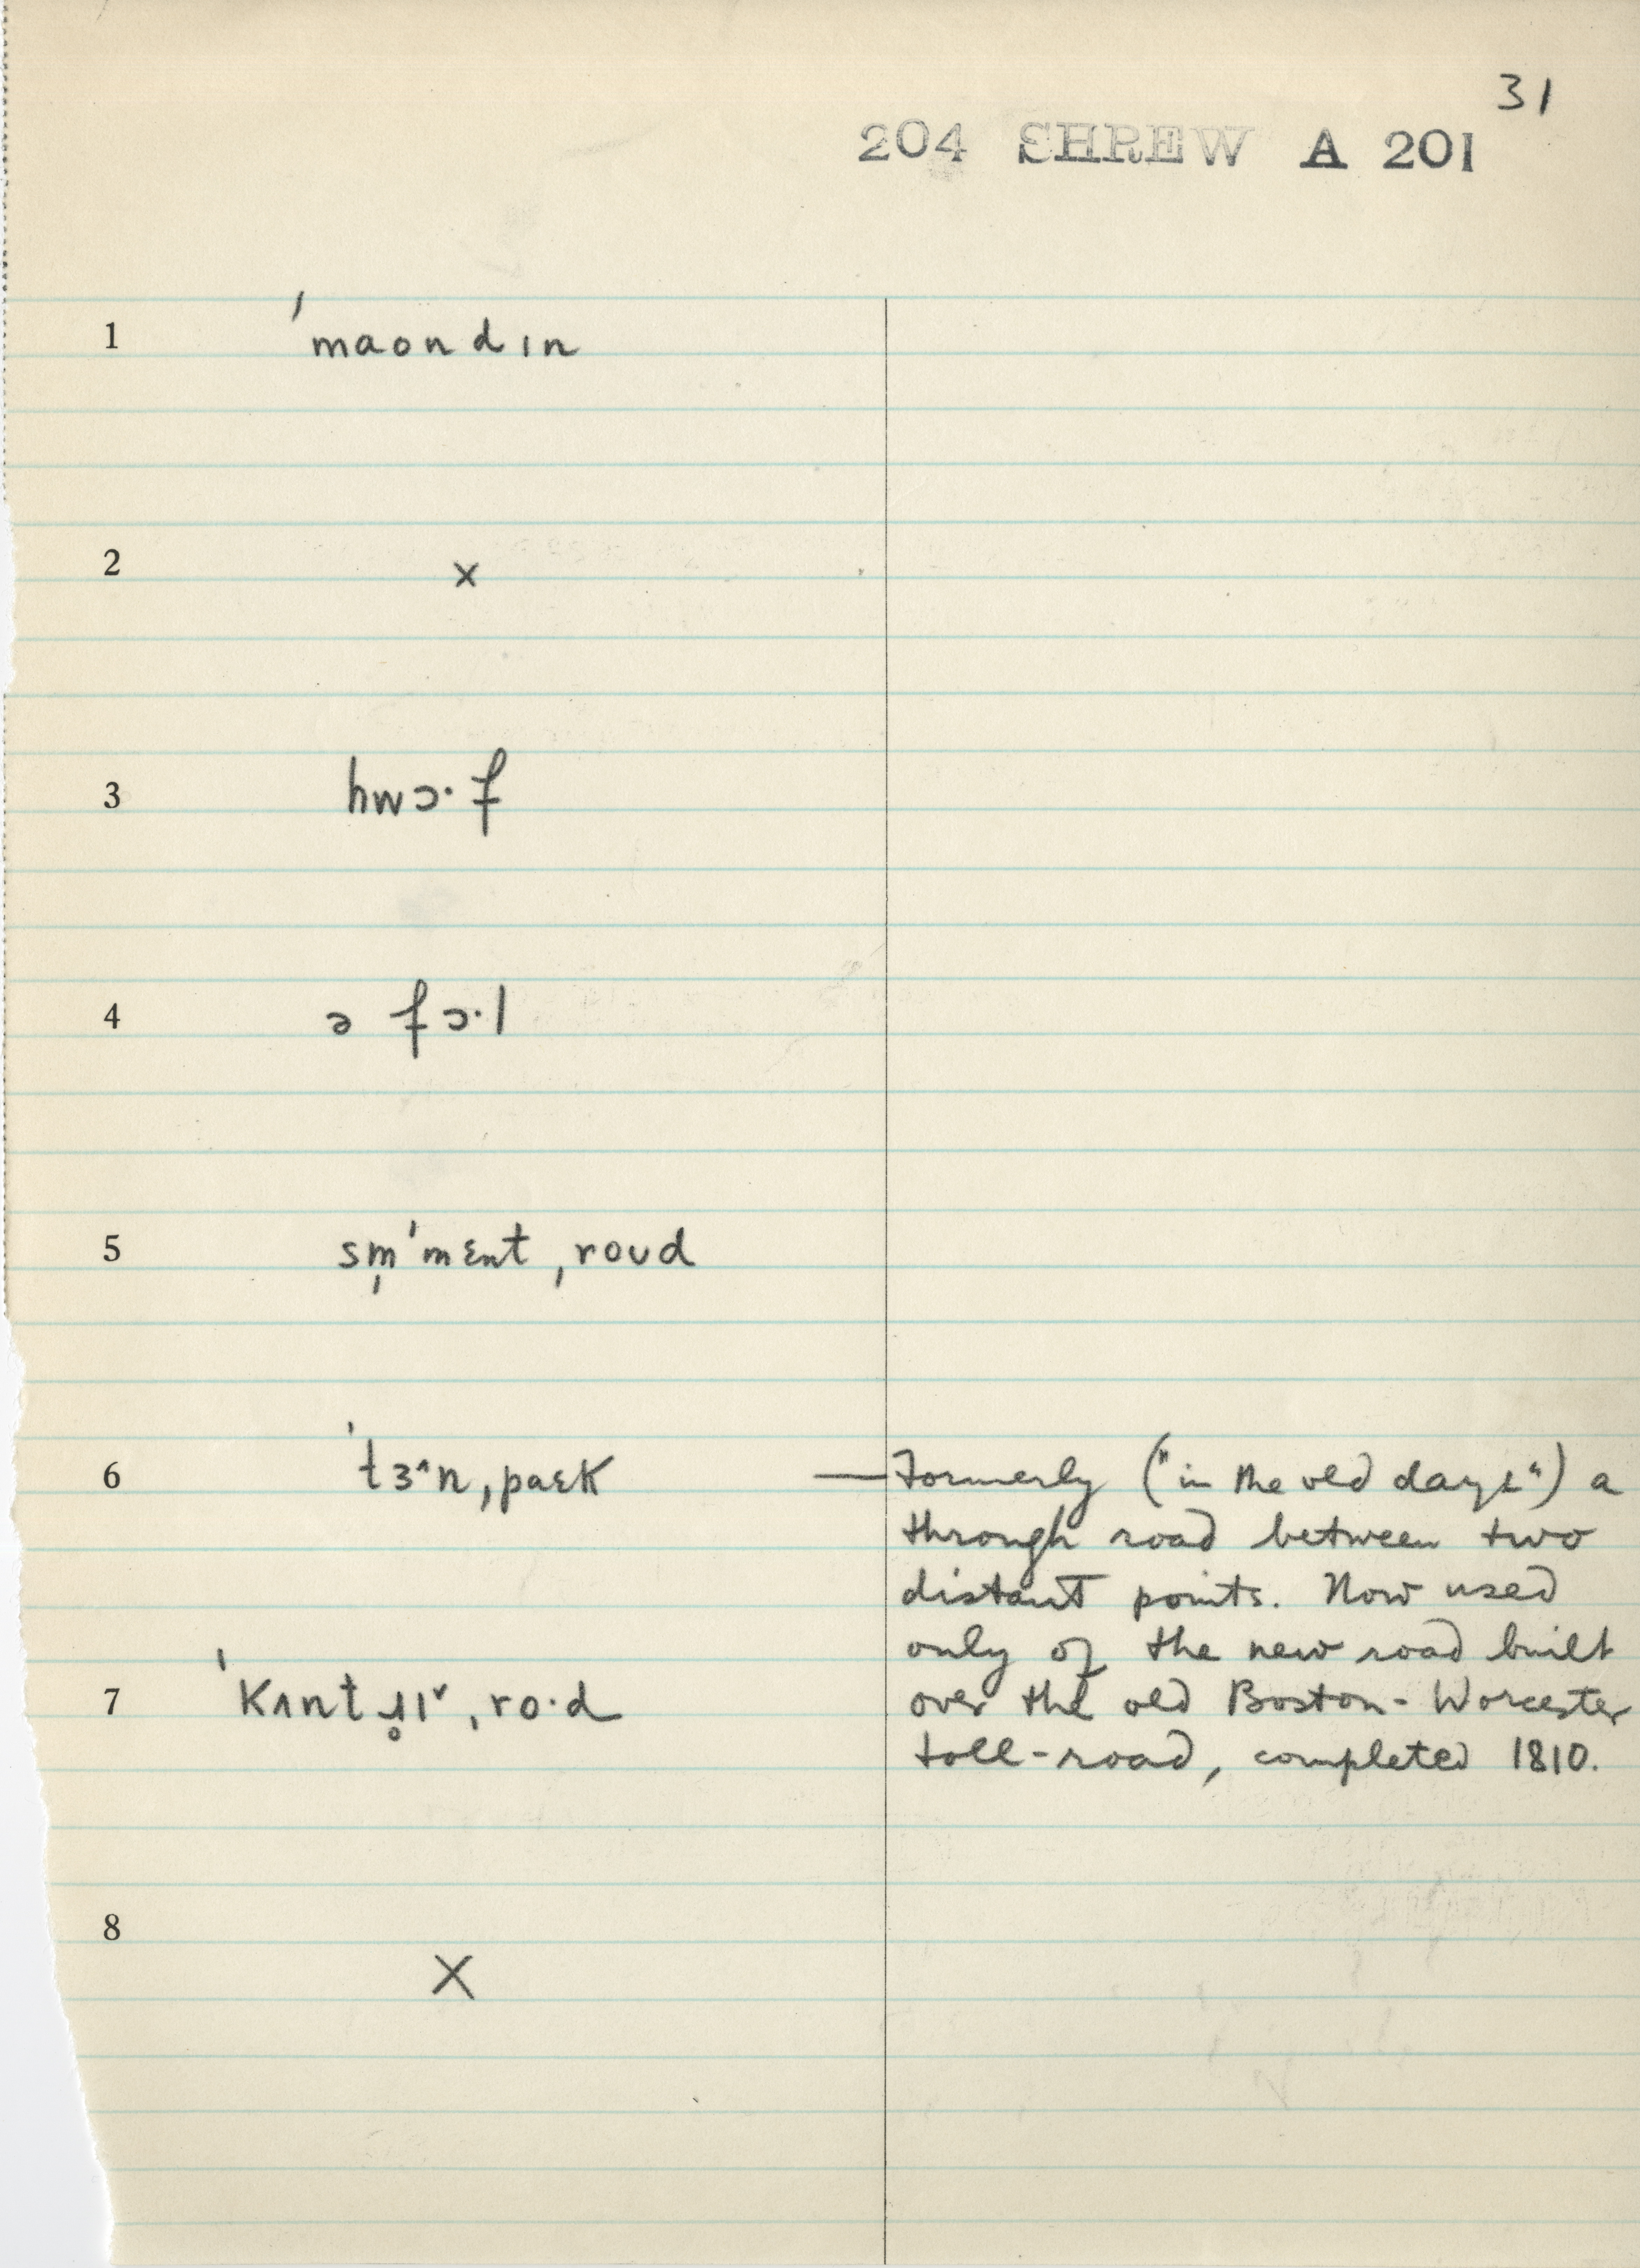 31
204 SHREW A 201
1 ˈmaondɪn
2 ×
3 hwɔ·f
4 ə fɔ·l
5 sm̩ˈmɛnt ˌroʊd
6 ˈtɜ^n ˌpaɛk — Formerly ("in the old days") a
through road between two
distant points. Now used
only of the new road built
7 ˈkʌnt ˌroˑd over the old Boston-Worcester
toll-road, completed 1810.
8 ×